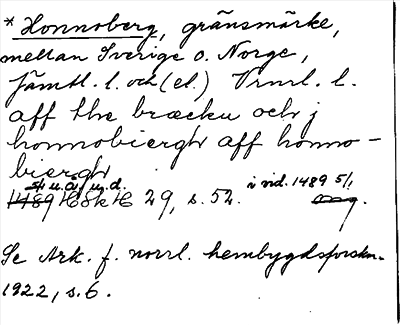 * Honnoberg, gränsmärke,
mellan Sverige o. Norge,
Jämtl. l. och (el.) Vrml. l.
aff the bræcku och j
honnobierghr aff honno-
bierghr
st u. å. u. d. i vid. 1489 5/1
1489 HSH 29, s. 52.
Se Ark. f. norrl. hembygdsforskn.
1922, s. 6.